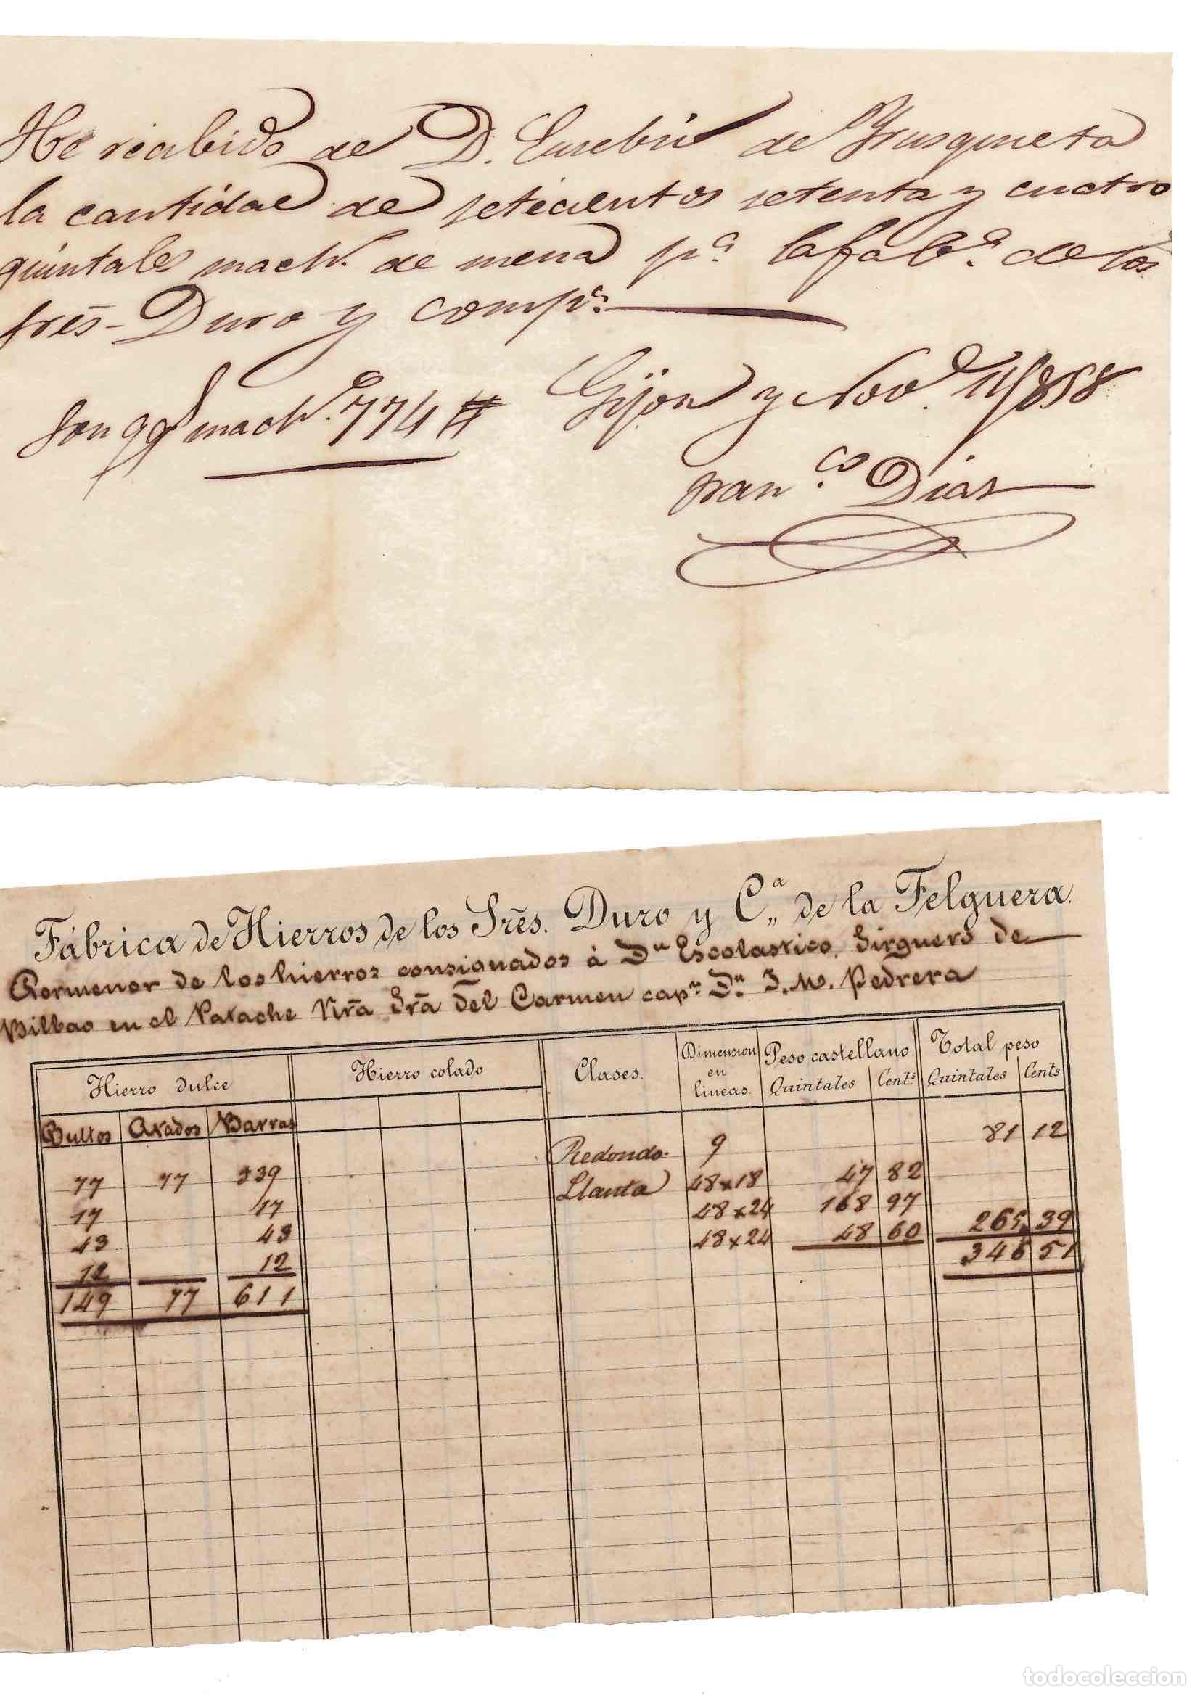 He recibido de D. Eusebio de Yrusqueta
la cantidad de setecientos setenta y cuatro
quintales mach.ˢ de mena p.ª la fab.ª de los
Sres. Duro y comp.ª
Son qq.ˢ mach.ˢ 774 # Gijon y Nov.ᵉ 11/858
Fran.ᶜᵒ Dias
Fábrica de Hierros de los Sres. Duro y C.ª de la Felguera.
Pormenor de los hierros consignados á Dn Escolastico Sirguero de
Bilbao en el Patache Ntra Sra del Carmen capn Dn J. M. Pedrera
Hierro dulce Hierro colado Clases. Dimension en lineas. Peso castellano Total peso
Quintales Cents Quintales Cents
Bultos Arados Barras
Redondo 9 81 12
77 77 539 Llanta 48x18 47 82
17 17 48x24 168 97
43 43 48x24 48 60 265 39
12 12 346 51
149 77 611
todocoleccion